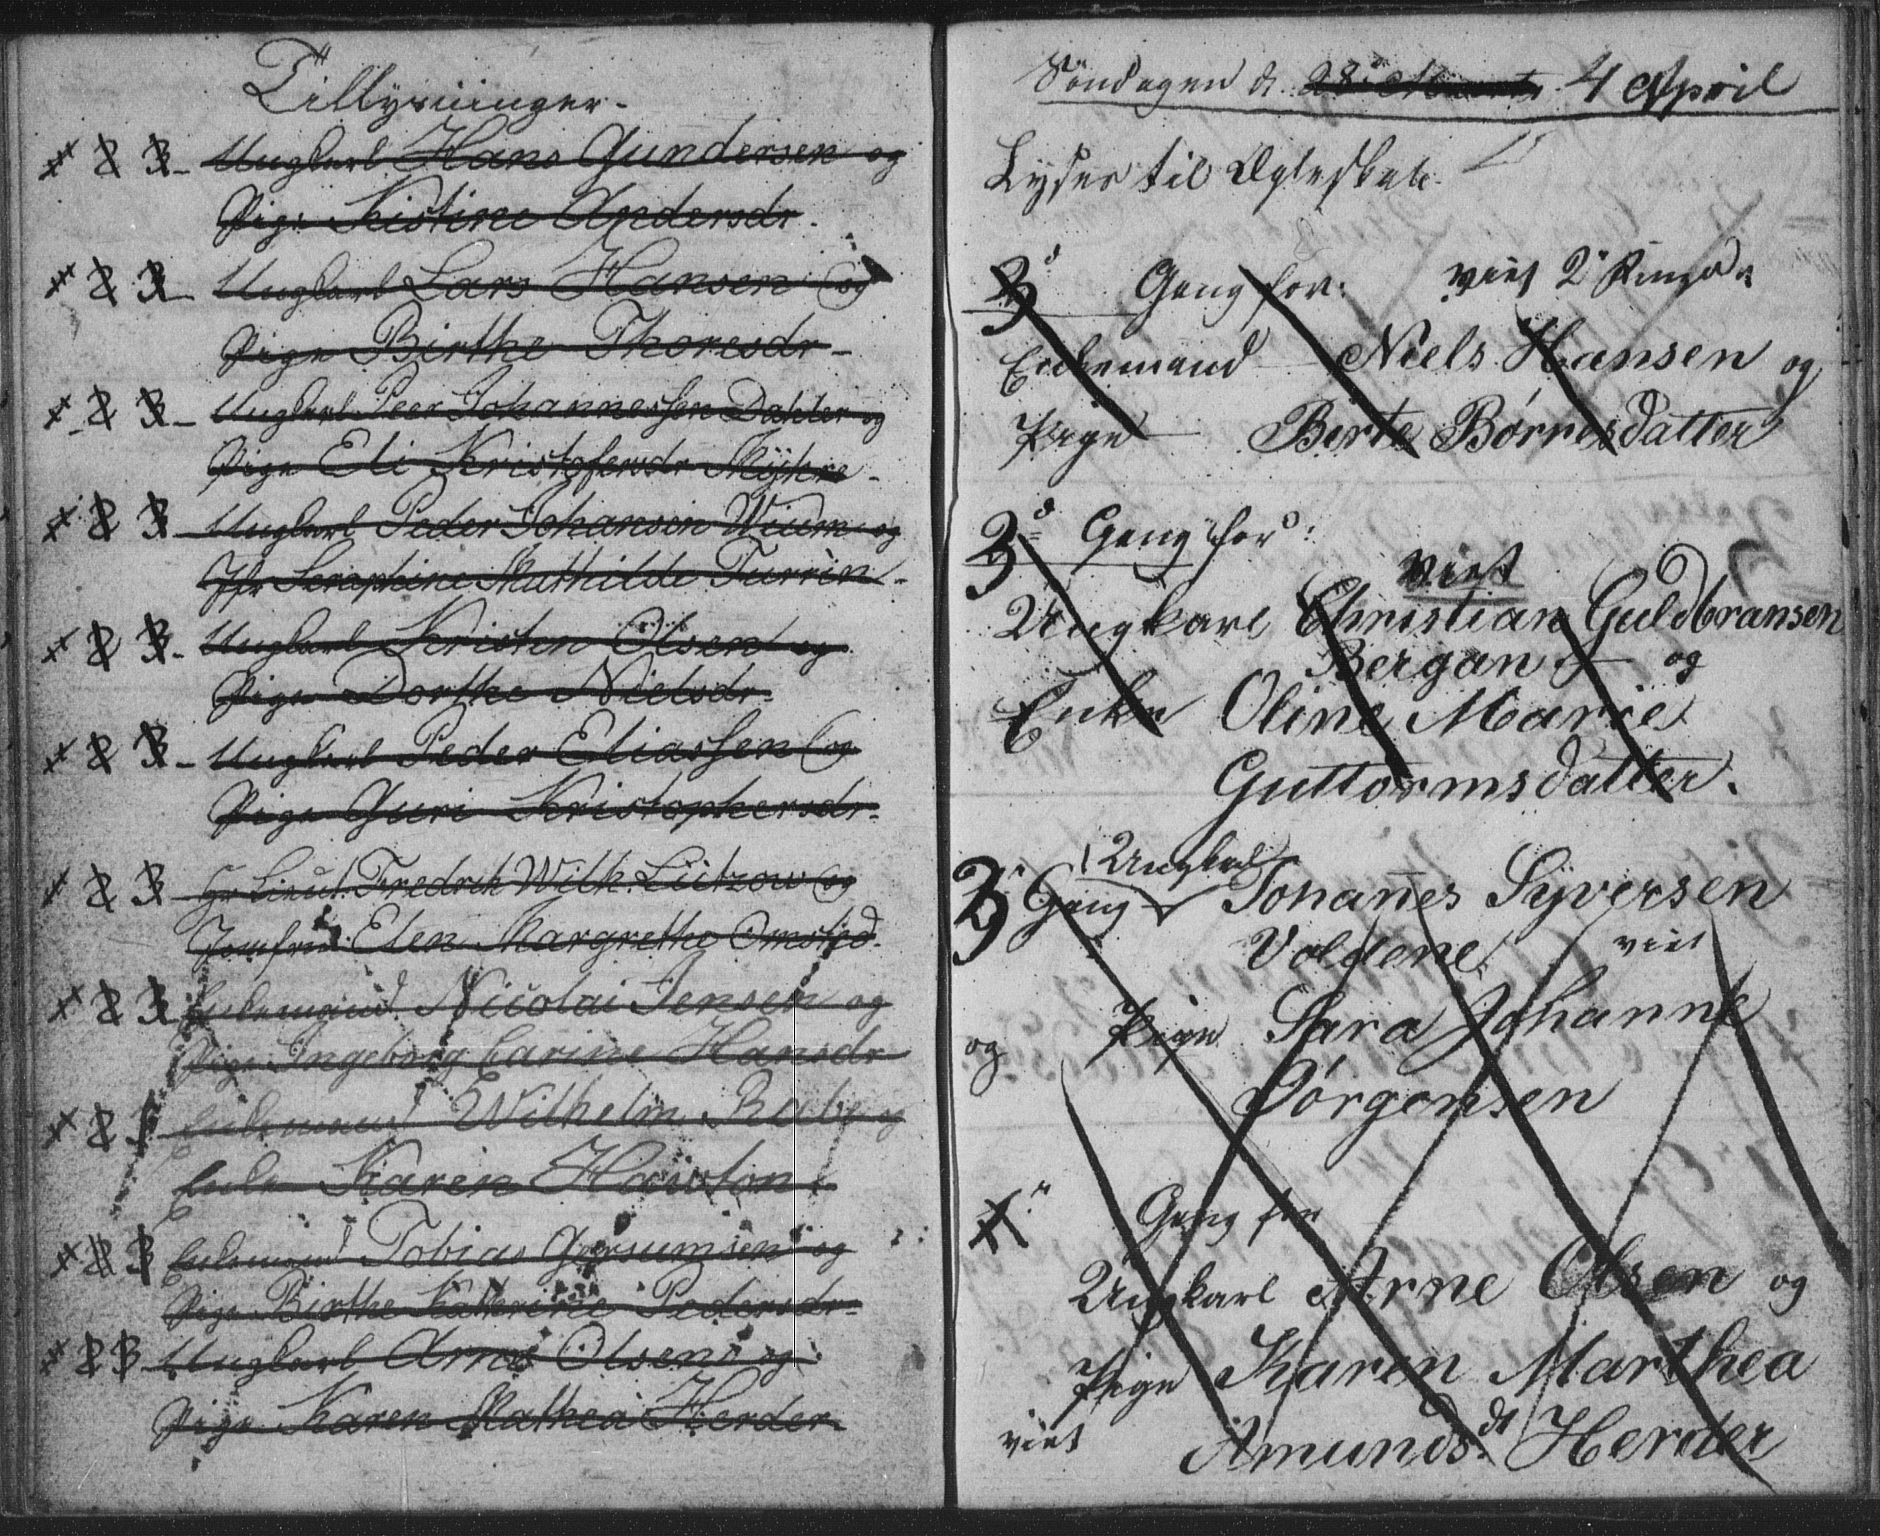 Tillysninger.
Ungkarl Hans Gundersen og
Pige Kistine Andersdr.
Ungkarl Lars Hansen og
Pige Birthe Thoresdr
Ungkarl Peer Johannessen Dahler og
Pige Eli Kristofersdr
Ungkarl Peder Johansen Wium og
Jfr Seraphine Mathilde Turrin
Ungkarl Kristen Olsen og
Pige Dorthe Nielsdr.
Ungkarl Peder Eliassen og
Pige Guri Kristophersdr.
Hr Lieut. Fredrik Wilh. Lützow og
Jomfru Elen Margrethe Omsted.
Enkemand Nicolai Jensen og
Pige Ingeborg Carine Hansdr
Enkemand Wilhelm og
Enke Karen
Enkemand Tobias og
Pige Birthe Kathrine Pedersdr.
Ungkarl Arne Olsen og
Pige Karen Mathea Herder
Søndagen d. 28 Marts 4 April
Lyses til Ægteskab.
3d Gang for: viet 2
Enkemand Niels Hansen og
Pige Birte Børresdatter
3d Gang for:
viet
Ungkarl Christian Guldbransen
Bergan og
Enke Oline Marie
Guttormsdatter.
3 Gang Ungkarl Johanes Syversen
Voldene viet
og Pige Sara Johanne
Jørgensen
Gang for
Ungkarl Arne Olsen og
Pige Karen Marthea
viet Amundsdt Herder